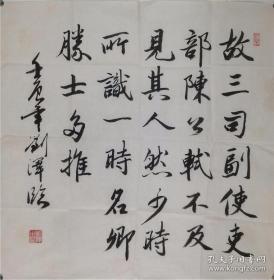 故三司副使吏
部陳公軾不及
見其人然少時
所識一時名卿
勝士多推
壬寅年劉澤臨
孔夫子旧书网